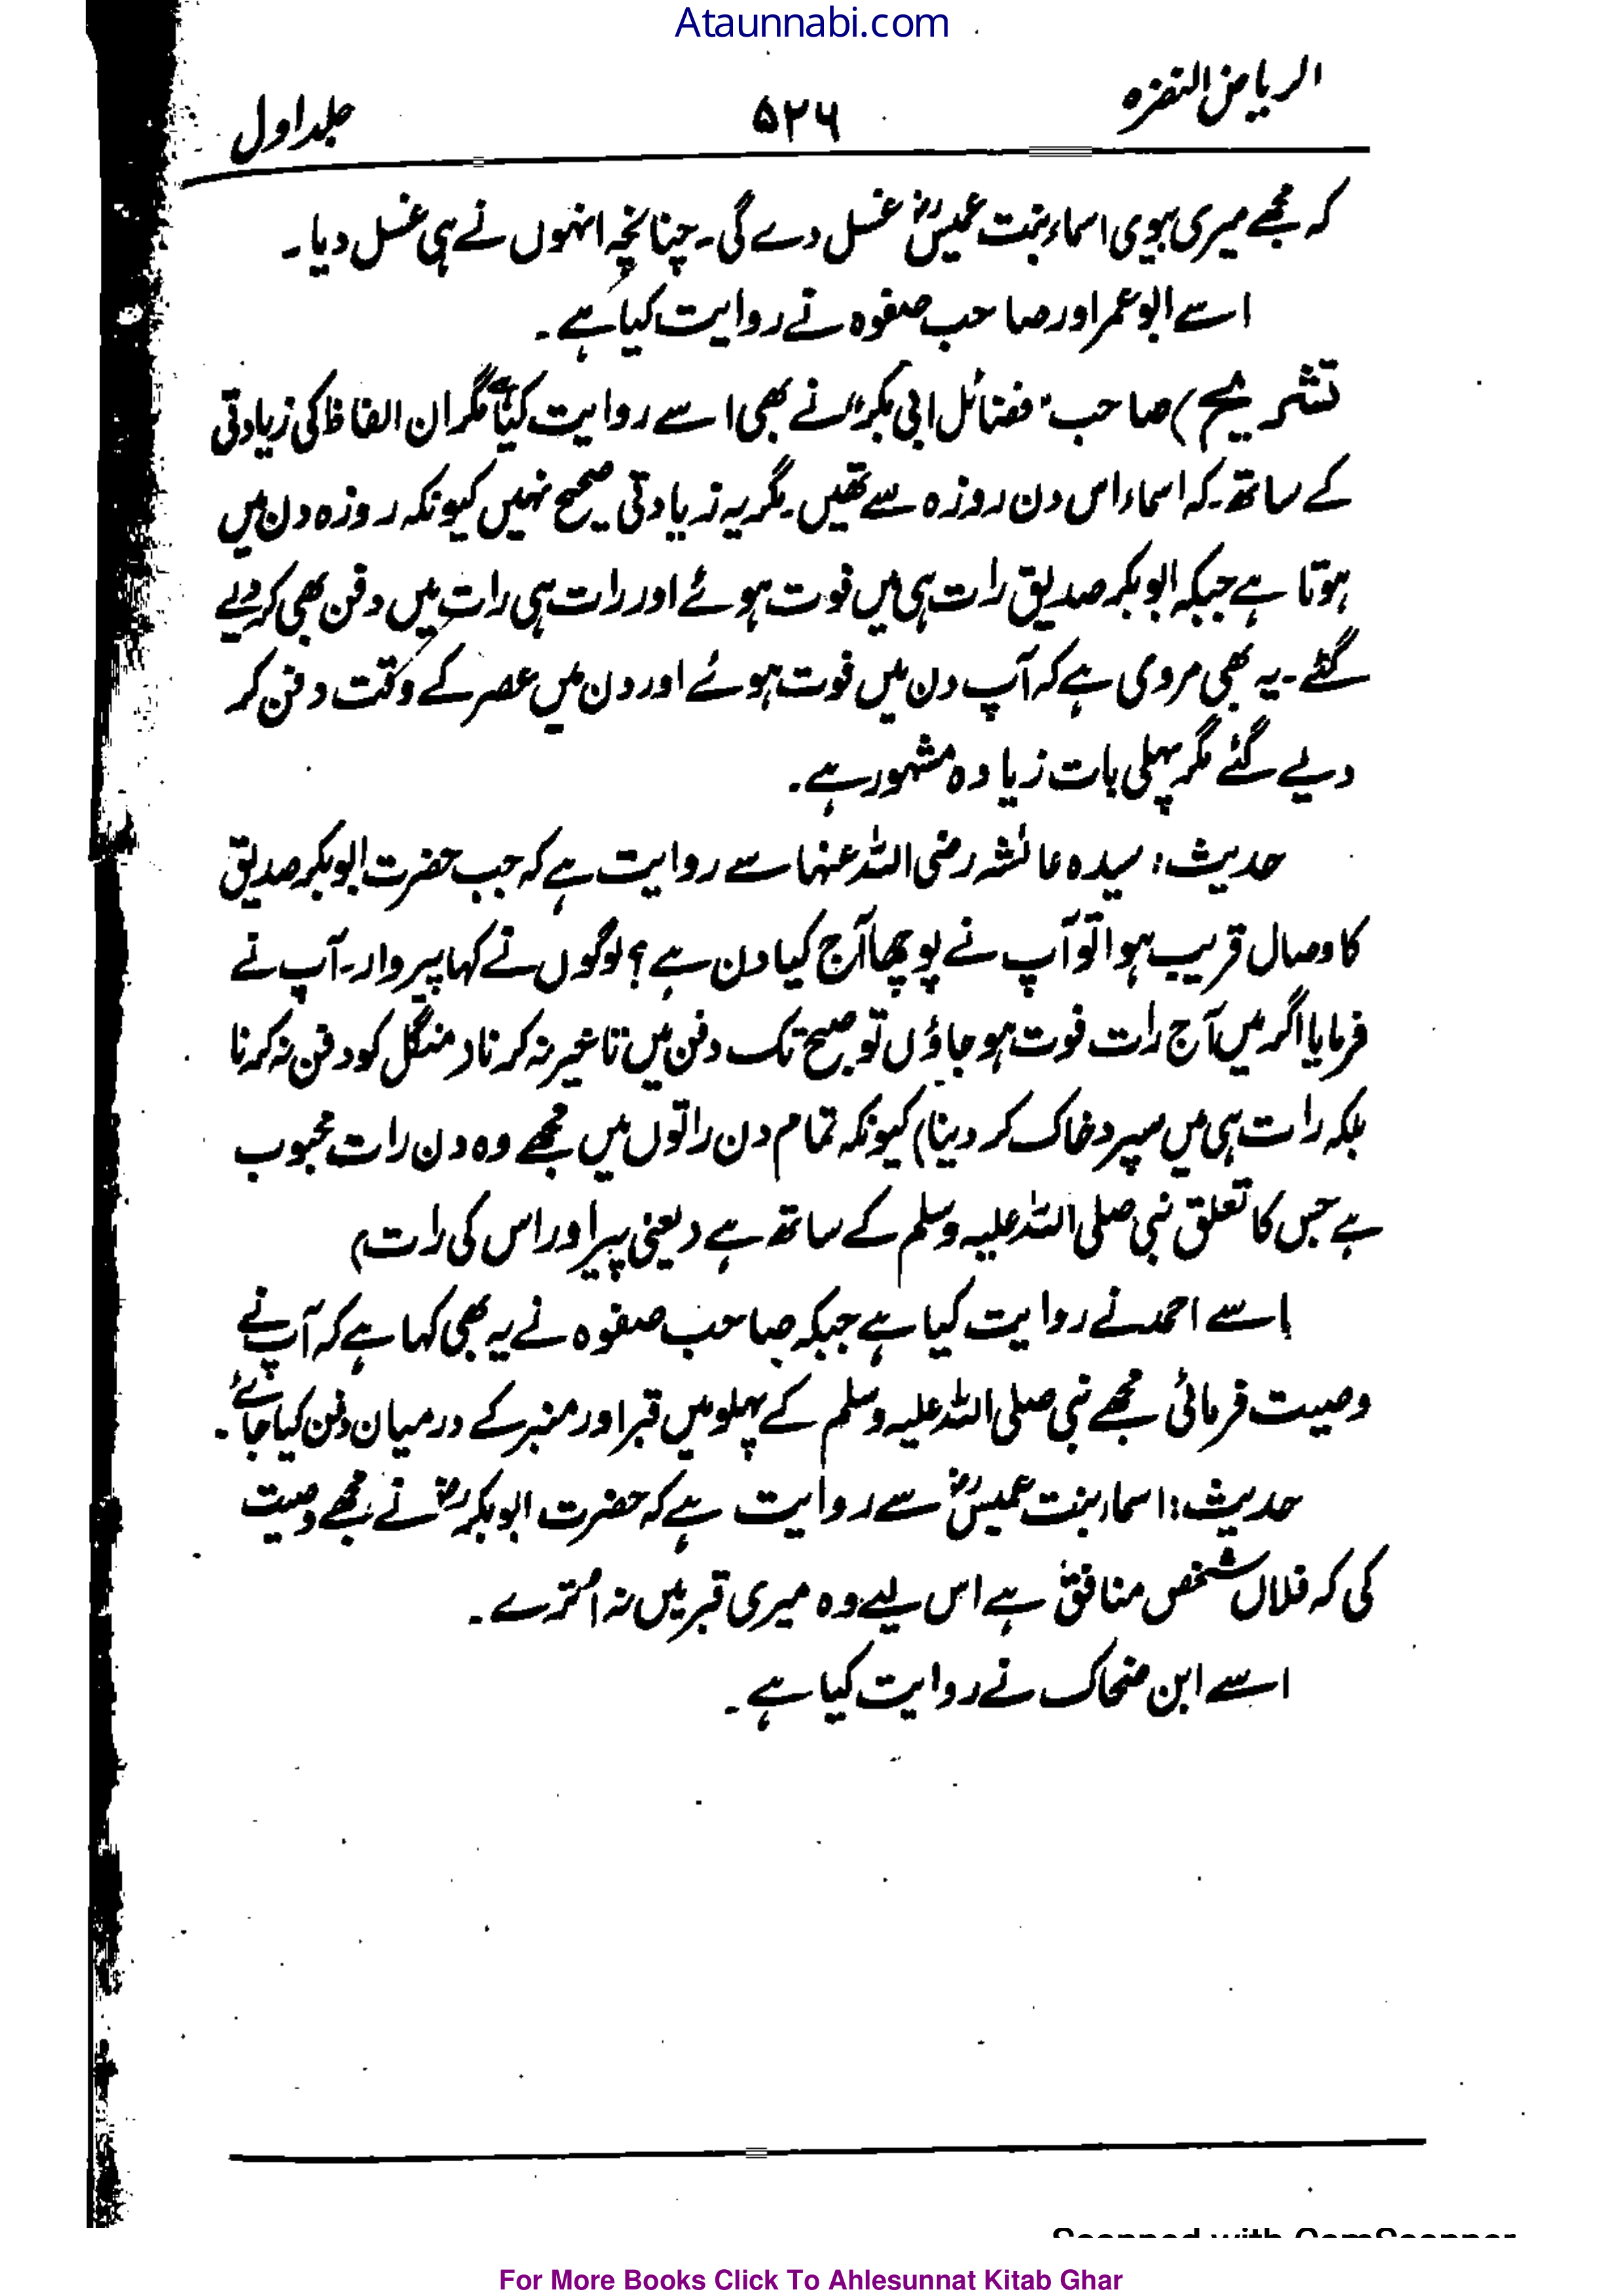 Ataunnabi.com
الریاض النضرہ ۵۲۶ جلد اول
کہ مجھے میری بیوی اسماء بنت عمیسؓ غسل دے گی۔ چنانچہ انہوں نے ہی غسل دیا۔
اسے ابو عمر اور صاحب صفوہ نے روایت کیا ہے۔
تشریح) صاحب "فضائل ابی بکر" نے بھی اسے روایت کیا ہے مگر ان الفاظ کی زیادتی
کے ساتھ۔ کہ اسماء اس دن روزہ سے تھیں۔ مگر یہ زیادتی صحیح نہیں کیونکہ روزہ دن میں
ہوتا ہے جبکہ ابوبکر صدیق رات ہی میں فوت ہوئے اور رات ہی رات میں دفن بھی کر دیے
گئے۔ یہ بھی مروی ہے کہ آپ دن میں فوت ہوئے اور دن میں عصر کے وقت دفن کر
دیے گئے مگر پہلی بات زیادہ مشہور ہے۔
حدیث: سیدہ عائشہ رضی اللہ عنہا سے روایت ہے کہ جب حضرت ابوبکر صدیق
کا وصال قریب ہوا تو آپ نے پوچھا آج کیا دن ہے؟ لوگوں نے کہا پیر وار۔ آپ نے
فرمایا اگر میں آج رات فوت ہو جاؤں تو صبح تک دفن میں تاخیر نہ کرنا (منگل کو دفن نہ کرنا
بلکہ رات ہی میں سپرد خاک کر دینا) کیونکہ تمام دن راتوں میں مجھے وہ دن رات محبوب
ہے جس کا تعلق نبی صلی اللہ علیہ وسلم کے ساتھ ہے (یعنی پیر اور اس کی رات)
اسے احمد نے روایت کیا ہے جبکہ صاحب صفوہ نے یہ بھی کہا ہے کہ آپ نے
وصیت فرمائی مجھے نبی صلی اللہ علیہ وسلم کے پہلو میں قبر اور منبر کے درمیان دفن کیا جائے۔
حدیث: اسماء بنت عمیسؓ سے روایت ہے کہ حضرت ابوبکرؓ نے مجھے وصیت
کی کہ فلاں شخص منافق ہے اس لیے وہ میری قبر میں نہ اُترے۔
اسے ابن ضحاک نے روایت کیا ہے۔
Scanned with CamScanner
For More Books Click To Ahlesunnat Kitab Ghar